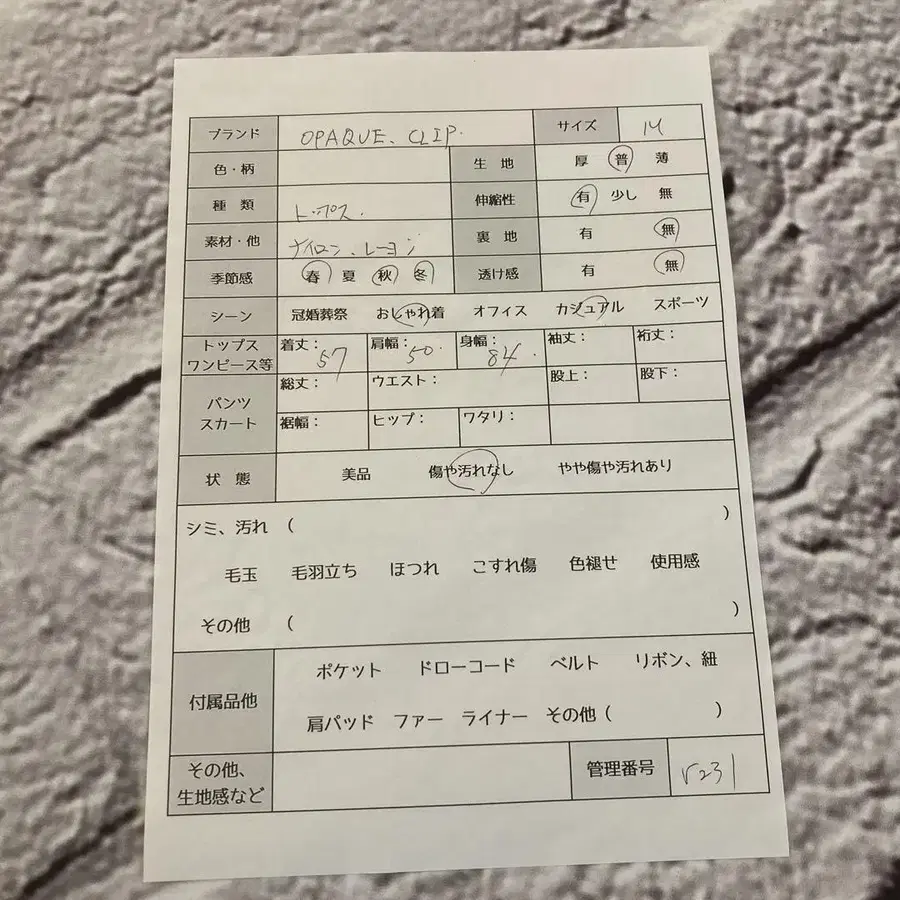 ブランド OPAQUE.CLIP. サイズ M
色・柄 生 地 厚 普 薄
種 類 トップス. 伸縮性 有 少し 無
素材・他 ナイロン、レーヨン 裏 地 有 無
季節感 春 夏 秋 冬 透け感 有 無
シーン 冠婚葬祭 おしゃれ着 オフィス カジュアル スポーツ
トップス ワンピース等 着丈: 57 肩幅: 50. 身幅: 84. 袖丈: 裄丈:
パンツ スカート 総丈: ウエスト: 股上: 股下:
裾幅: ヒップ: ワタリ:
状 態 美品 傷や汚れなし やや傷や汚れあり
シミ、汚れ ( )
毛玉 毛羽立ち ほつれ こすれ傷 色褪せ 使用感
その他 ( )
付属品他 ポケット ドローコード ベルト リボン、紐
肩パッド ファー ライナー その他 ( )
その他、生地感など 管理番号 r231